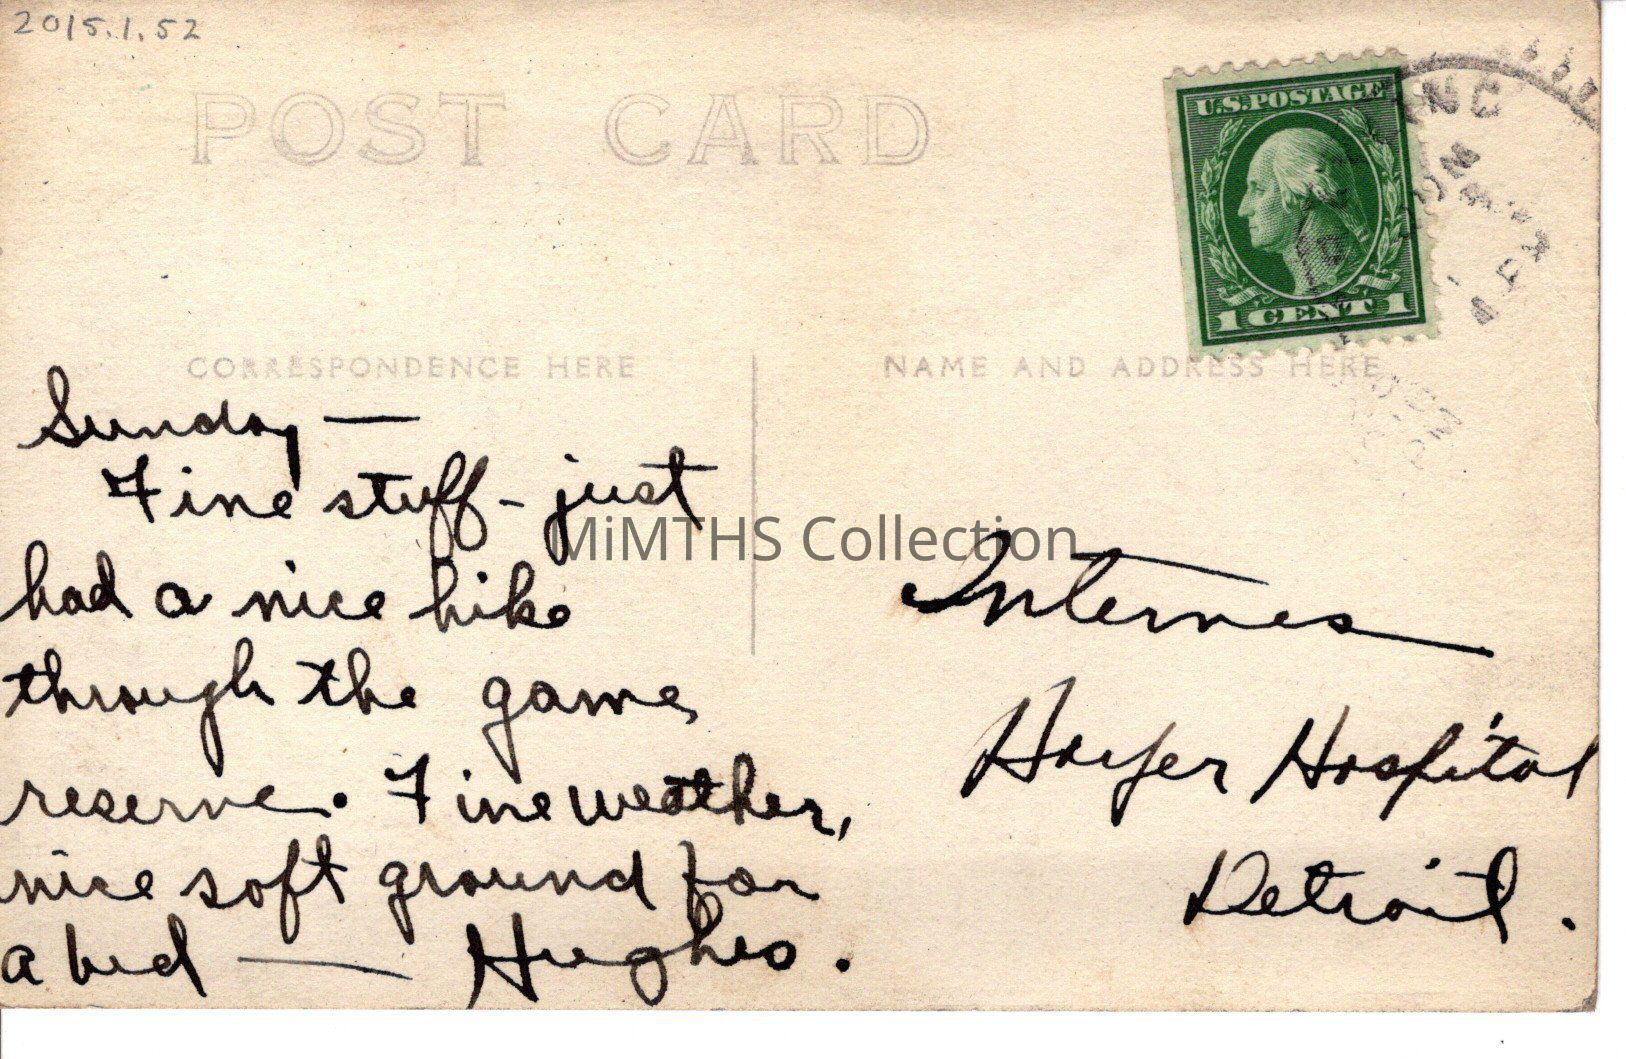 2015.1.52
POST CARD
U.S. POSTAGE
1 CENT 1
CORRESPONDENCE HERE
NAME AND ADDRESS HERE
Sunday —
Fine stuff - just
had a nice hike
through the game
reserve. Fine weather,
nice soft ground for
a bed — Hughes.
MiMTHS Collection
Internes
Harper Hospital
Detroit.